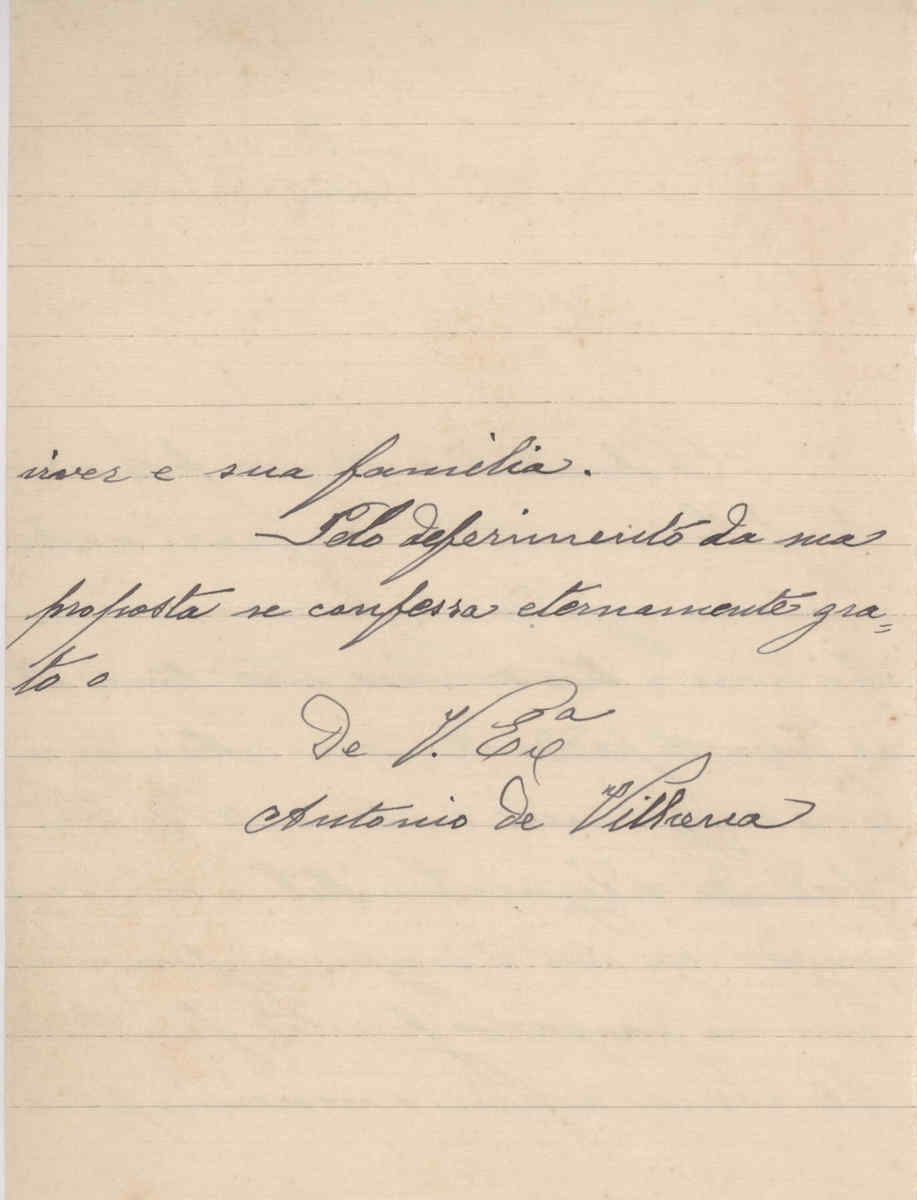 viver e sua familia.
Pelo deferimento da sua
proposta se confessa eternamente gra=
to o
De V. Exª
Antonio de Vilhena